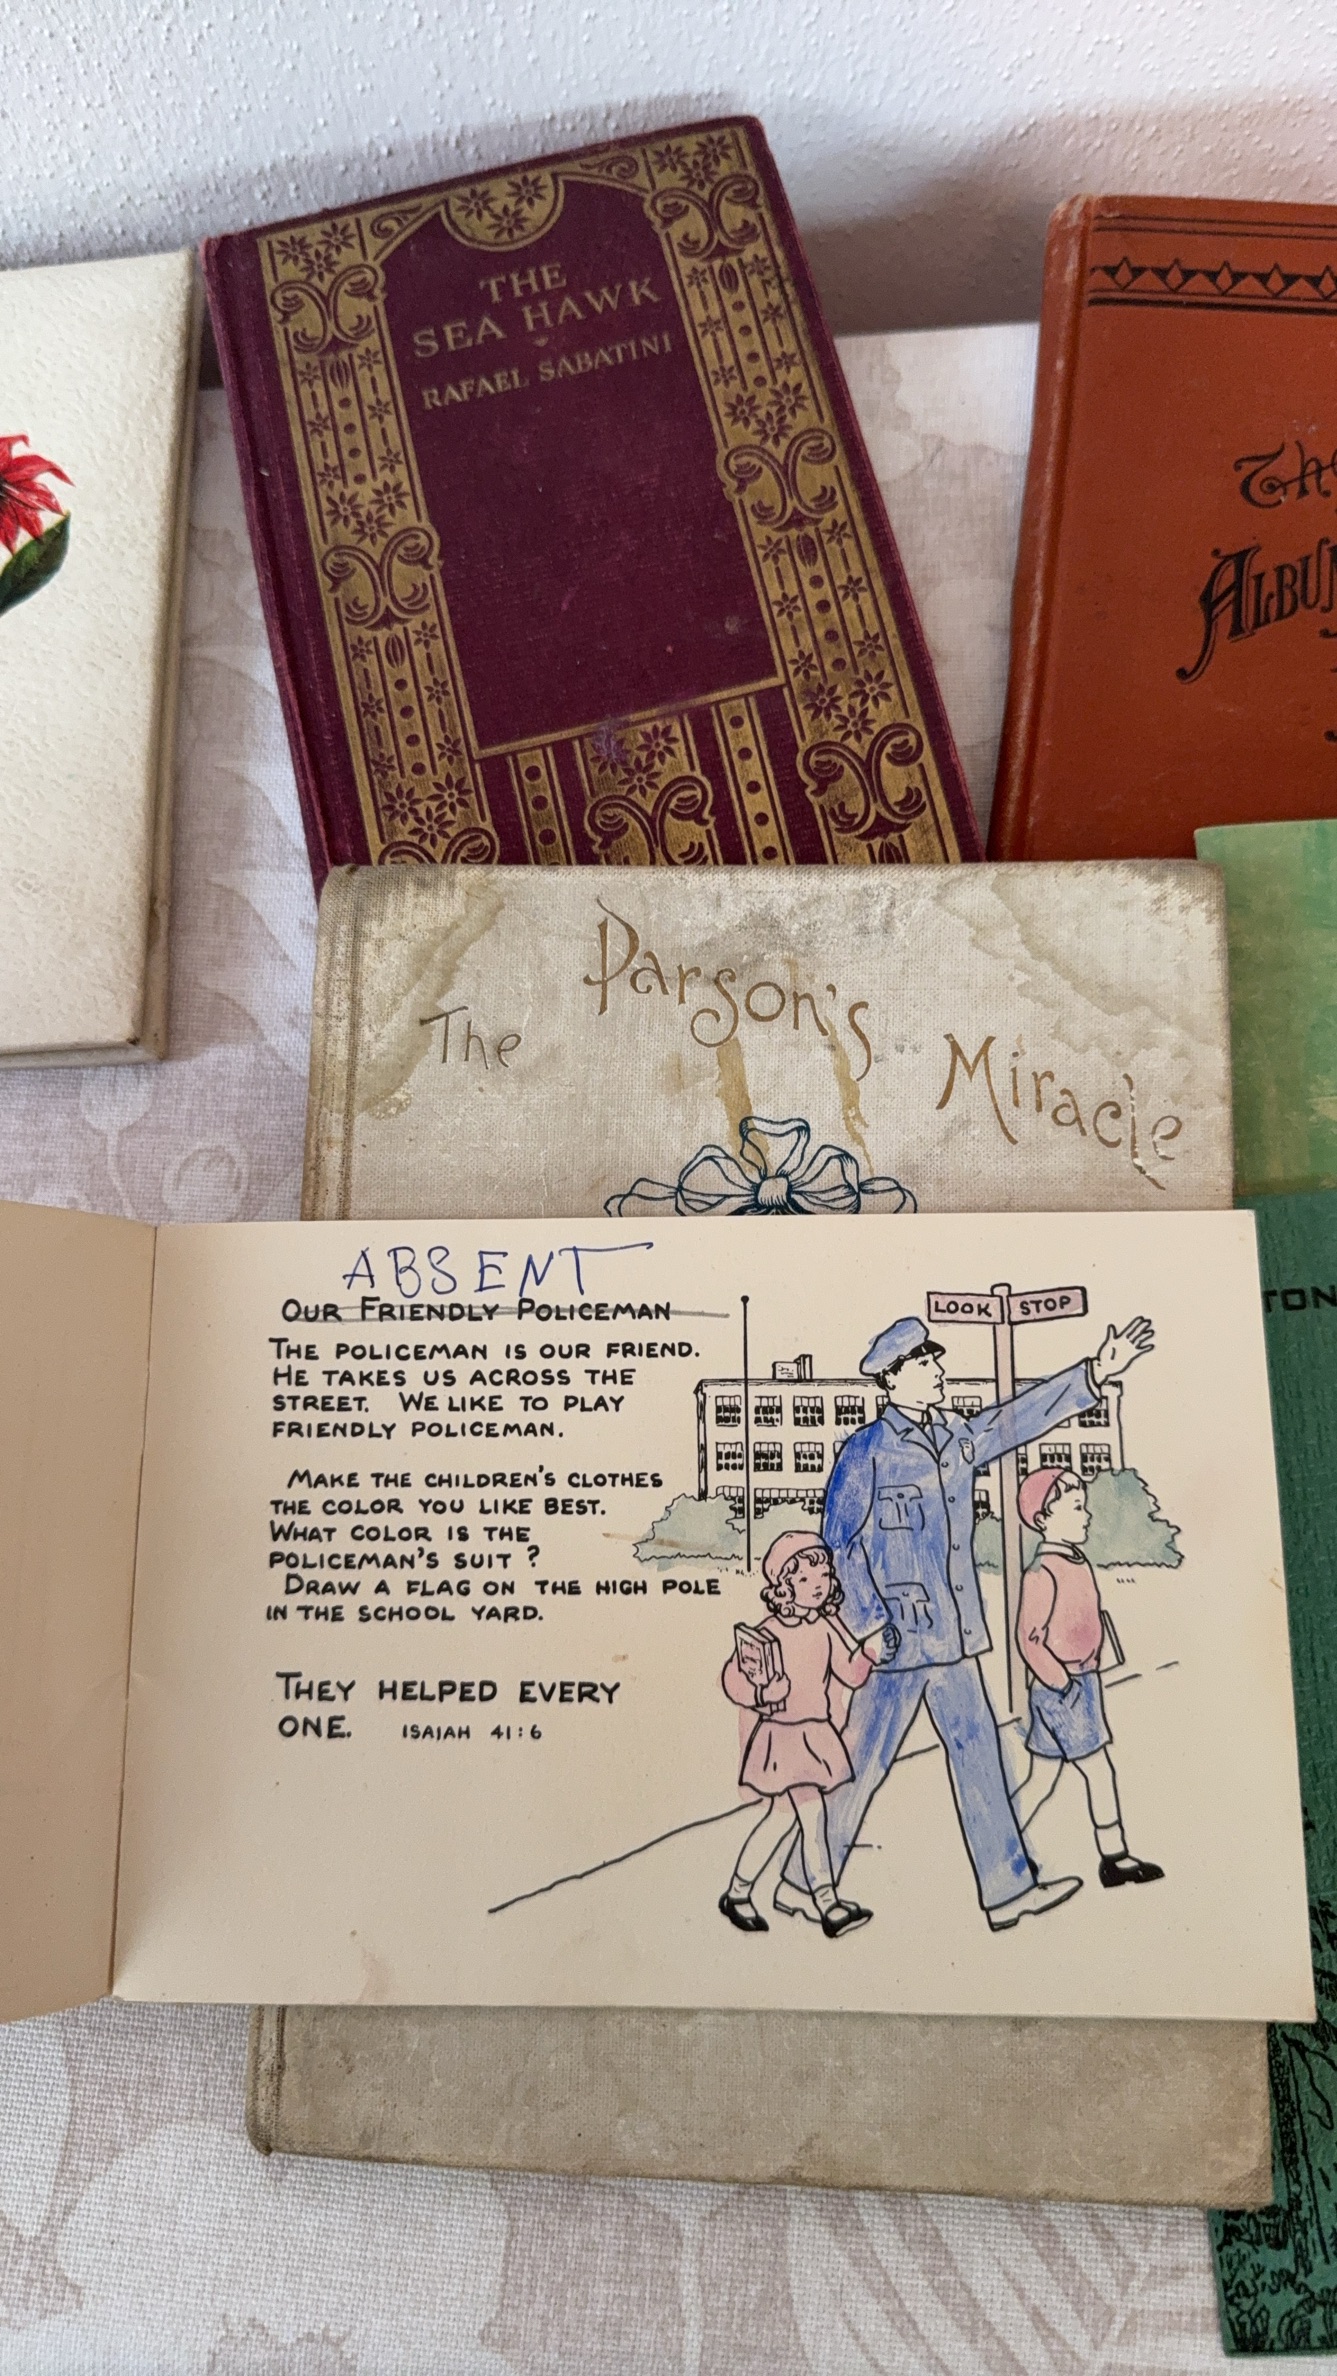 THE
SEA HAWK
RAFAEL SABATINI
The
Parson's
Miracle
ABSENT
OUR FRIENDLY POLICEMAN
THE POLICEMAN IS OUR FRIEND.
HE TAKES US ACROSS THE
STREET. WE LIKE TO PLAY
FRIENDLY POLICEMAN.
MAKE THE CHILDREN'S CLOTHES
THE COLOR YOU LIKE BEST.
WHAT COLOR IS THE
POLICEMAN'S SUIT ?
DRAW A FLAG ON THE HIGH POLE
IN THE SCHOOL YARD.
THEY HELPED EVERY
ONE. ISAIAH 41:6
LOOK STOP